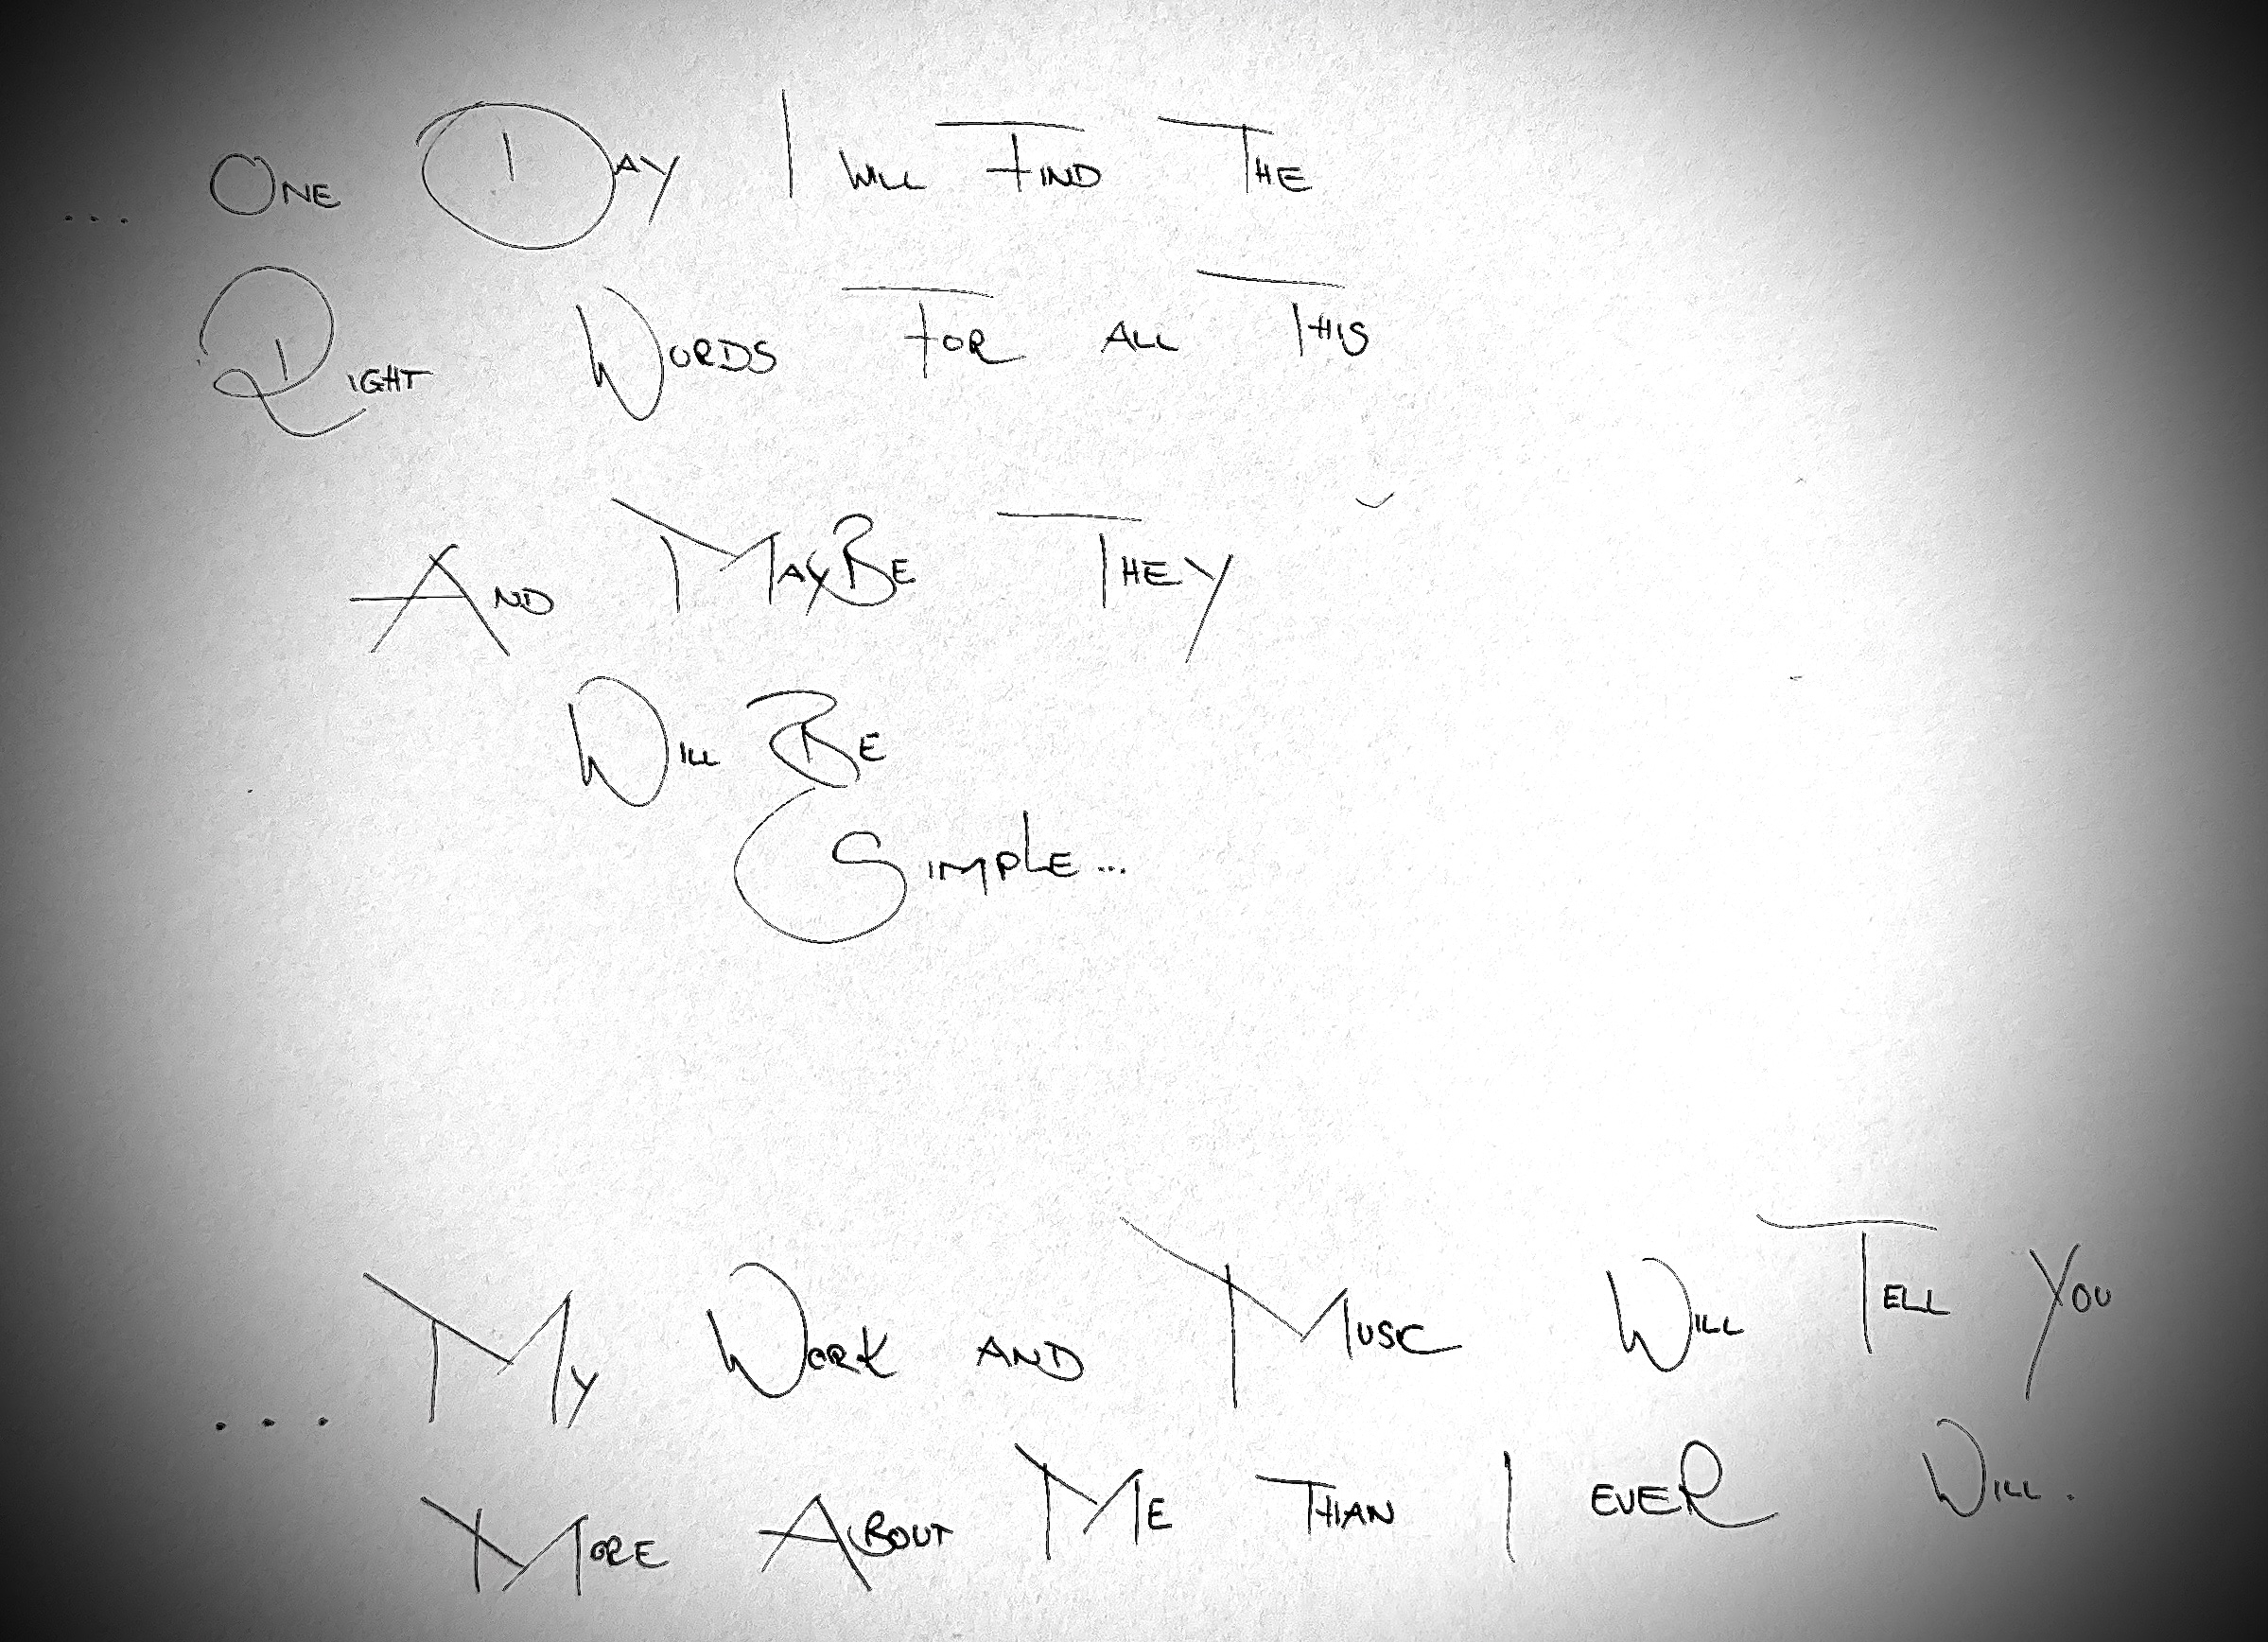 ... One Day I will Find The
Right Words For all This
And MayBe They
Will Be
Simple...
... My Work and Music Will Tell You
More About Me Than I ever Will.